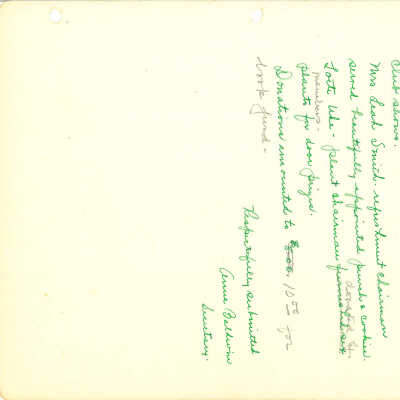 Club shows.
Mrs Leah Smid. refreshment chairman
served beautifully appointed punch & cookies.
Lorti Uke - plant chairman furnished six donated by
plants for door prizes. members.
Donations amounted to 10 00 for
book fund -
Respectfully submitted
Anne Baldwin
Secretary.